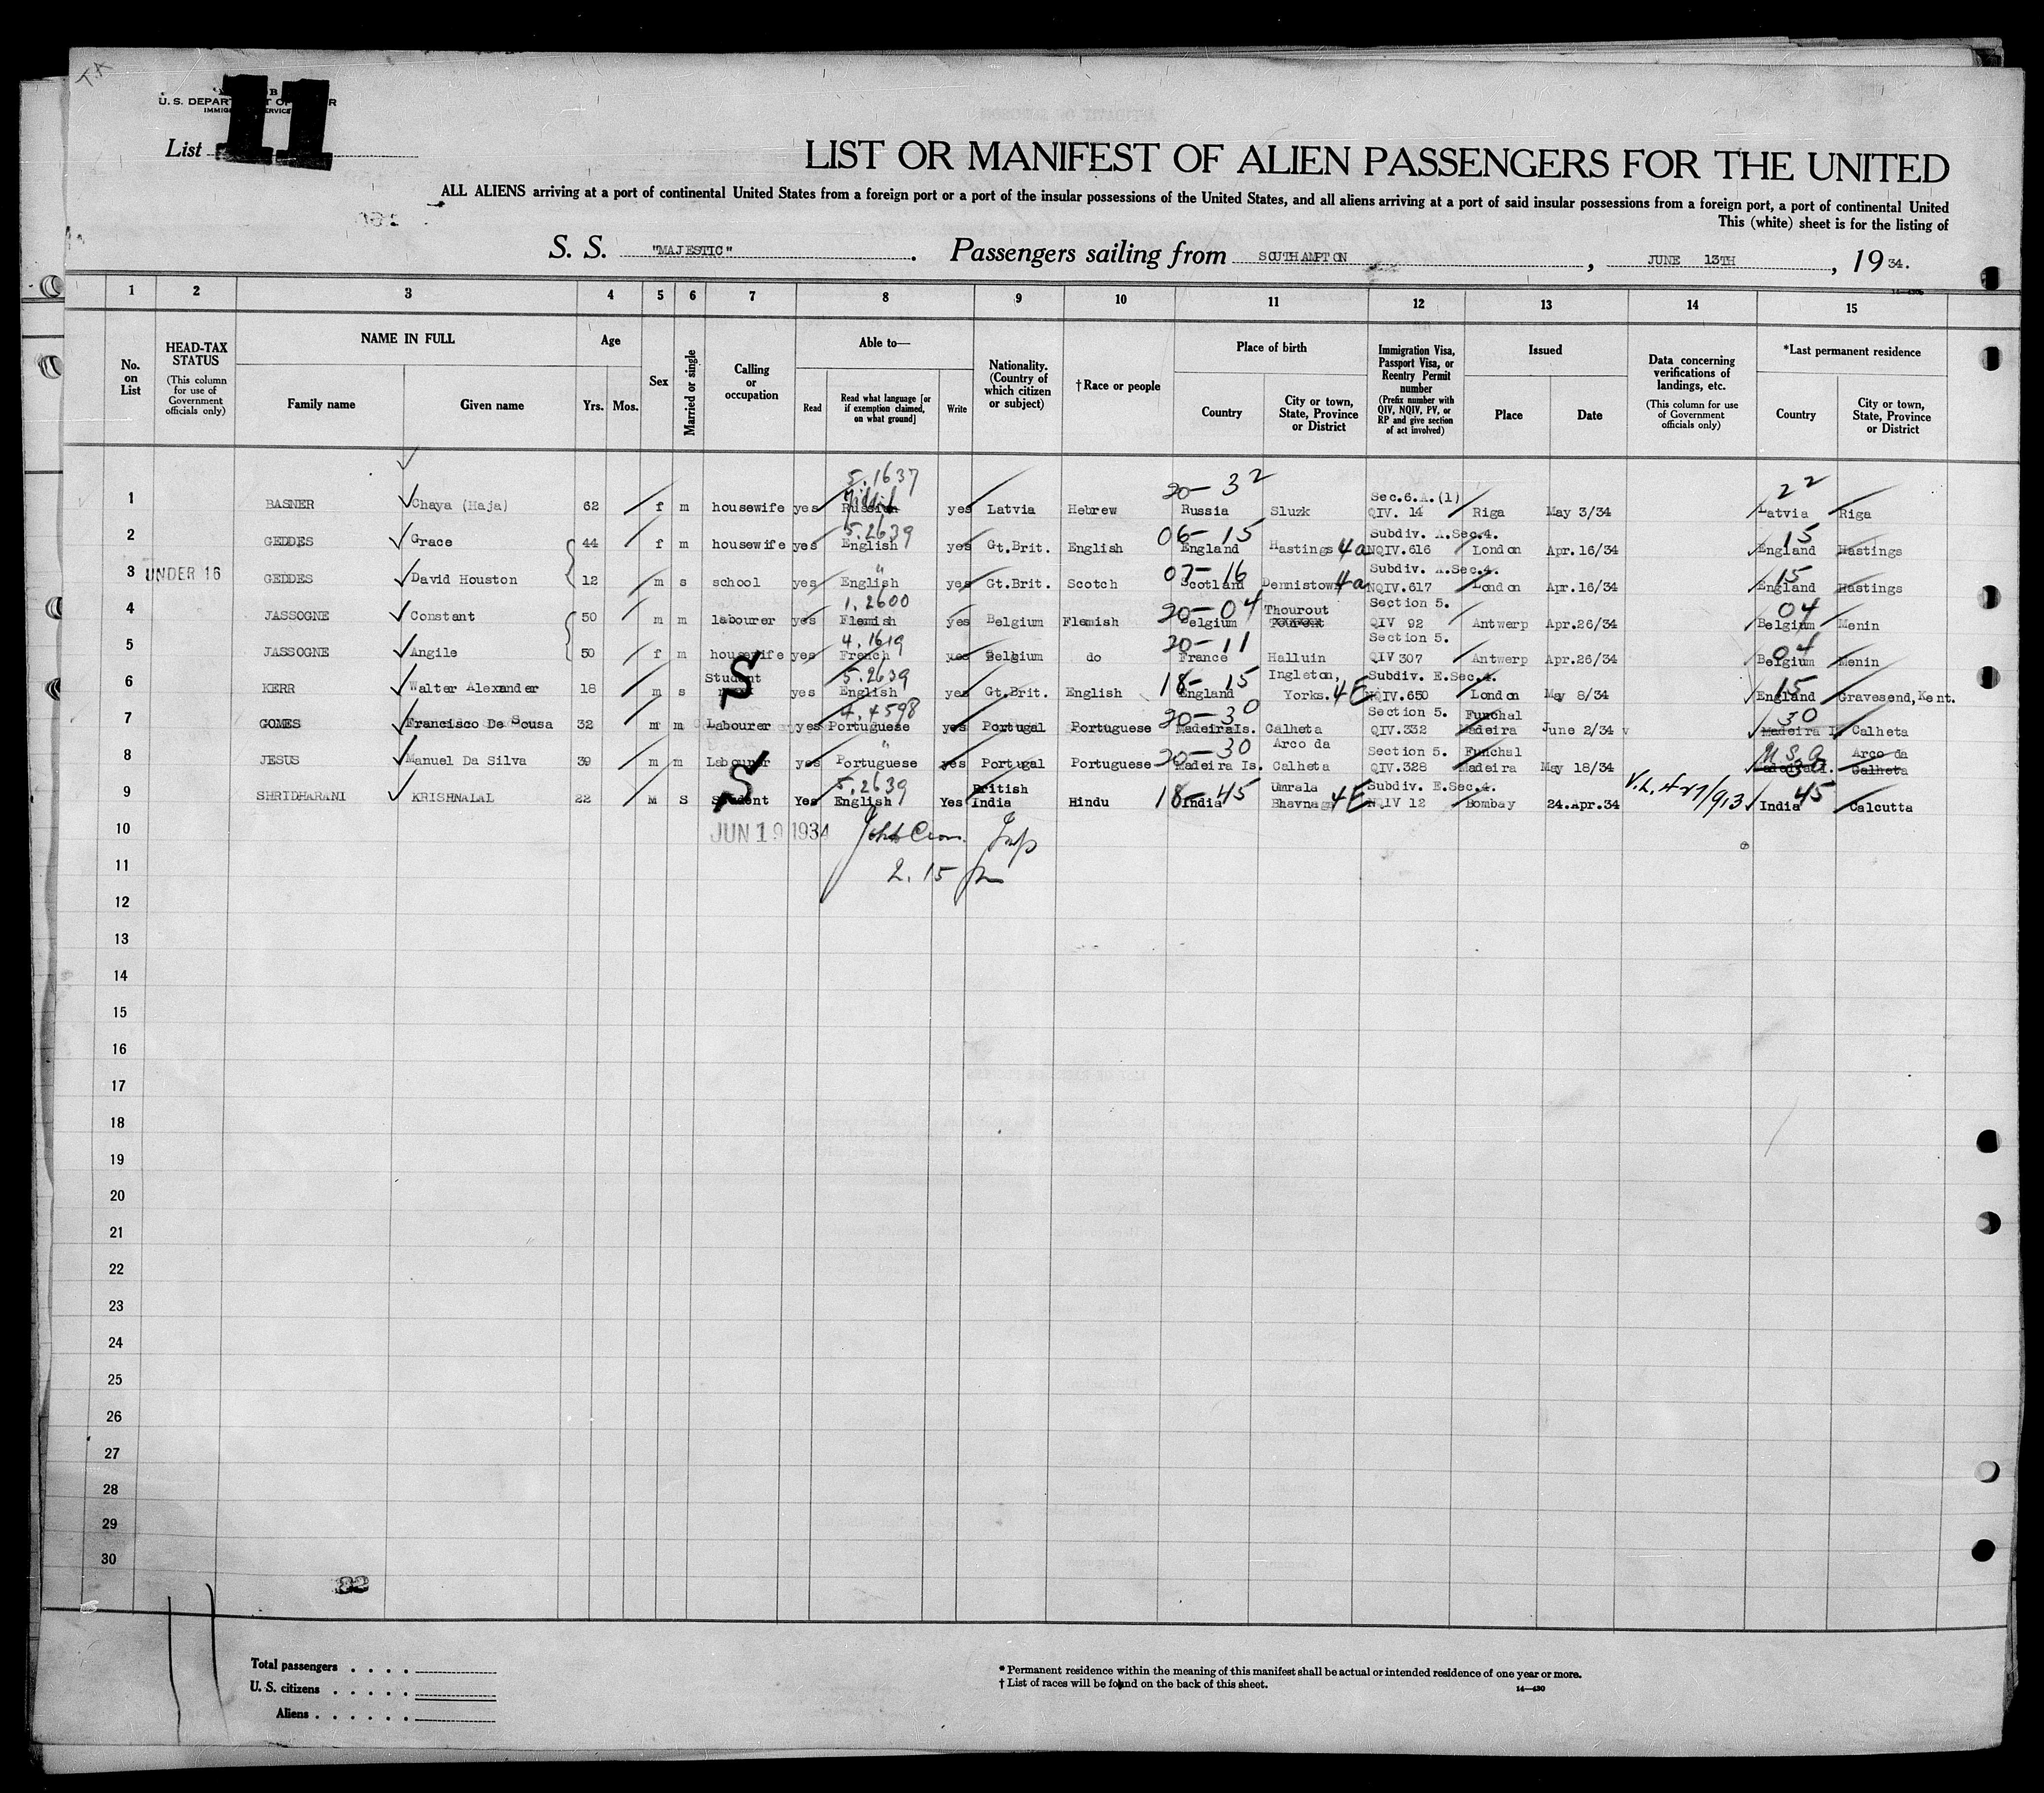 U. S. DEPARTMENT OF LABOR
IMMIGRATION SERVICE
List 11
LIST OR MANIFEST OF ALIEN PASSENGERS FOR THE UNITED
ALL ALIENS arriving at a port of continental United States from a foreign port or a port of the insular possessions of the United States, and all aliens arriving at a port of said insular possessions from a foreign port, a port of continental United
This (white) sheet is for the listing of
S. S. "MAJESTIC". Passengers sailing from SOUTHAMPTON, JUNE 13TH, 19 34.
1 2 3 4 5 6 7 8 9 10 11 12 13 14 15
No. on List
HEAD-TAX STATUS (This column for use of Government officials only)
NAME IN FULL Family name Given name
Age Yrs. Mos.
Sex
Married or single
Calling or occupation
Able to— Read Read what language [or if exemption claimed, on what ground] Write
Nationality. (Country of which citizen or subject)
†Race or people
Place of birth Country City or town, State, Province or District
Immigration Visa, Passport Visa, or Reentry Permit number (Prefix number with QIV, NQIV, PV, or RP and give section of act involved)
Issued Place Date
Data concerning verifications of landings, etc. (This column for use of Government officials only)
*Last permanent residence Country City or town, State, Province or District
5.1637 20-32 22
1 BASNER Chaya (Haja) 62 f m housewife yes Yiddish Russian yes Latvia Hebrew Russia Sluzk Sec.6.A.(1) QIV. 14 Riga May 3/34 Latvia Riga
5.2639 06-15 15
2 GEDDES Grace 44 f m housewife yes English yes Gt.Brit. English England Hastings 4a Subdiv. A.Sec.4. NQIV.616 London Apr.16/34 England Hastings
" 07-16 15
3 UNDER 16 GEDDES David Houston 12 m s school yes English yes Gt.Brit. Scotch Scotland Dennistown 4a Subdiv. A.Sec.4. NQIV.617 London Apr.16/34 England Hastings
1.2600 20-04 04
4 JASSOGNE Constant 50 m m labourer yes Flemish yes Belgium Flemish Belgium Thourout Section 5. QIV 92 Antwerp Apr.26/34 Belgium Menin
4.1619 20-11 04
5 JASSOGNE Angile 50 f m housewife yes French yes Belgium do France Halluin Section 5. QIV 307 Antwerp Apr.26/34 Belgium Menin
5.2639 18-15 15
6 KERR Walter Alexander 18 m s Student S yes English yes Gt.Brit. English England Ingleton, Yorks. 4E Subdiv. E.Sec.4. NQIV.650 London May 8/34 England Gravesend, Kent.
4.4598 20-30 30
7 GOMES Francisco De Sousa 32 m m Labourer yes Portuguese yes Portugal Portuguese MadeiraIs. Calheta Section 5. QIV.332 Funchal Madeira June 2/34 Madeira I. Calheta
" 20-30 U.S.A. 30
8 JESUS Manuel Da Silva 39 m m Labourer yes Portuguese yes Portugal Portuguese Madeira Is. Arco da Calheta Section 5. QIV.328 Funchal Madeira May 18/34 Madeira I. Arco da Calheta
5.2639 18-45 45
9 SHRIDHARANI KRISHNALAL 22 M S Student S Yes English Yes British India Hindu India Umrala Bhavnagar 4E Subdiv. E.Sec.4. NQIV 12 Bombay 24.Apr.34 India Calcutta
10 JUN 19 1934 Insp
11 2.15 pm
12
13
14
15
16
17
18
19
20
21
22
23
24
25
26
27
28
29
30
82
Total passengers . . . .
U. S. citizens . . . . .
Aliens . . . . . .
* Permanent residence within the meaning of this manifest shall be actual or intended residence of one year or more.
† List of races will be found on the back of this sheet.
14—430